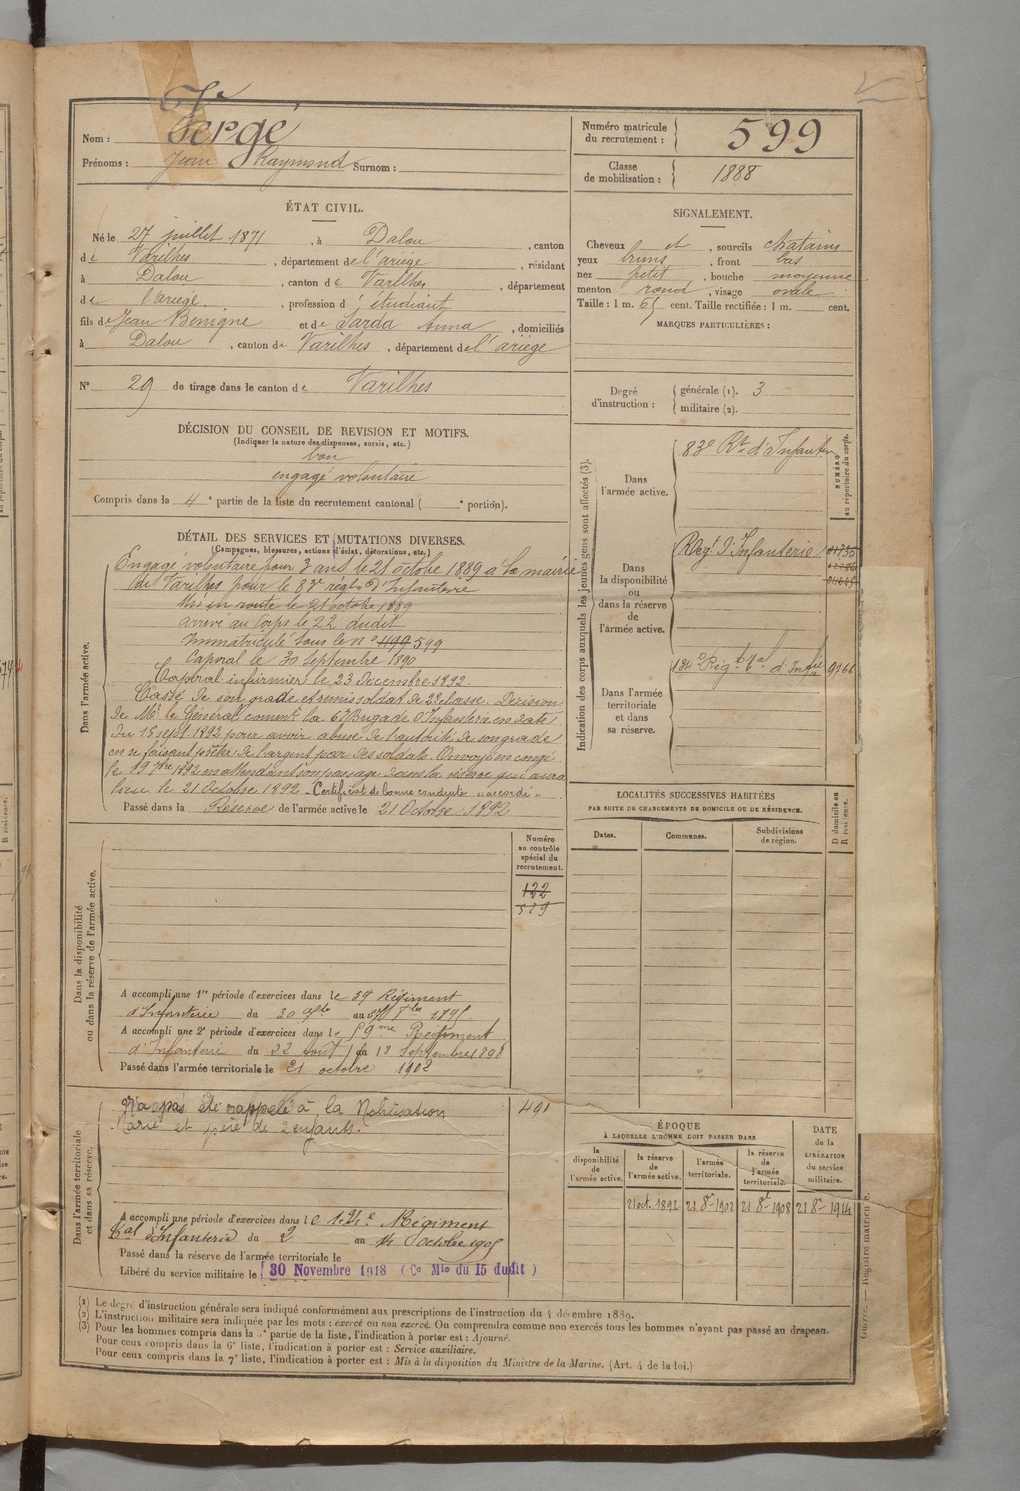 Nom : Vergé
Prénoms : Jean Raymond Surnom :
Numéro matricule du recrutement : 599
Classe de mobilisation : 1888
ÉTAT CIVIL.
Né le 27 juillet 1871, à Dalou, canton
de Varilhes, département de l'ariège, résidant
à Dalou, canton de Varilhes, département
de l'ariège, profession d' étudiant
fils de Jean Benigne et de Sarda Anna, domiciliés
à Dalou, canton de Varilhes, département de l'ariège
N° 29 de tirage dans le canton de Varilhes
SIGNALEMENT.
Cheveux et, sourcils chatains
yeux bruns, front bas
nez petit, bouche moyenne
menton rond, visage ovale
Taille : 1 m. 65 cent. Taille rectifiée : 1 m. cent.
MARQUES PARTICULIÈRES :
Degré d'instruction : générale (1). 3
militaire (2).
DÉCISION DU CONSEIL DE REVISION ET MOTIFS.
(Indiquer la nature des dispenses, sursis, etc.)
bon
engagé volontaire
Compris dans la 4e partie de la liste du recrutement cantonal ( e portion).
DÉTAIL DES SERVICES ET MUTATIONS DIVERSES.
(Campagnes, blessures, actions d'éclat, décorations, etc.)
Dans l'armée active.
Engagé volontaire pour 3 ans le 21 octobre 1889 a la mairie
de Varilhes pour le 83e régt d'Infanterie
Mis en route le 21 octobre 1889
arrivé au corps le 22 dudit
Immatriculé sous le n° 1199 599
Caporal le 30 septembre 1890
Caporal infirmier le 23 Décembre 1892.
Cassé de son grade et remis soldat de 2e classe. Décision
de Mr le Général commt la 67 Brigade d'Infanterie en date
du 15 sept. 1892 pour avoir abusé de l'autorité de son grade
en se faisant prêter de l'argent par des soldats. Envoyé en congé
le 19 7bre 1892 en attendant son passage dans la réserve qui aura
lieu le 21 Octobre 1892 - Certificat de bonne conduite "accordé"
Passé dans la Réserve de l'armée active le 21 Octobre 1892
Indication des corps auxquels les jeunes gens sont affectés (3).
NUMÉRO au répertoire du corps.
Dans l'armée active.
83e Rt d'Infanterie
Dans la disponibilité ou dans la réserve de l'armée active.
Régt d'Infanterie 01735
01645
Dans l'armée territoriale et dans sa réserve.
134e Régt tal d'Infie 9766
LOCALITÉS SUCCESSIVES HABITÉES
PAR SUITE DE CHANGEMENTS DE DOMICILE OU DE RÉSIDENCE.
Dates. Communes. Subdivisions de région.
D domicile ou R résidence.
Dans la disponibilité ou dans la réserve de l'armée active.
Numéro au contrôle spécial du recrutement.
122
579
A accompli une 1re période d'exercices dans le 59e Régiment
d'Infanterie du 30 au 1895
A accompli une 2e période d'exercices dans le 59me Régiment
d'Infanterie du 22 aout au 18 Septembre 1898
Passé dans l'armée territoriale le 21 octobre 1902
Dans l'armée territoriale et dans sa réserve.
N'a pas été rappelé à la Mobilisation 491
Marié et père de 2 enfants.
A accompli une période d'exercices dans le 134e Régiment
tal d'Infanterie du 2 au 14 octobre 1905
Passé dans la réserve de l'armée territoriale le
Libéré du service militaire le 30 Novembre 1918 (Ce Mle du 15 dudit)
ÉPOQUE
À LAQUELLE L'HOMME DOIT PASSER DANS
DATE de la LIBÉRATION du service militaire.
la disponibilité de l'armée active.
la réserve de l'armée active.
l'armée territoriale.
la réserve de l'armée territoriale.
21 oct. 1892 21 8re 1902 21 8re 1908 21 8re 1914
Guerre. — Registre matricule.
(1) Le degré d'instruction générale sera indiqué conformément aux prescriptions de l'instruction du 4 décembre 1889.
(2) L'instruction militaire sera indiquée par les mots : exercé ou non exercé. On comprendra comme non exercés tous les hommes n'ayant pas passé au drapeau.
(3) Pour les hommes compris dans la 5e partie de la liste, l'indication à porter est : Ajourné.
Pour ceux compris dans la 6e liste, l'indication à porter est : Service auxiliaire.
Pour ceux compris dans la 7e liste, l'indication à porter est : Mis à la disposition du Ministre de la Marine. (Art. 4 de la loi.)